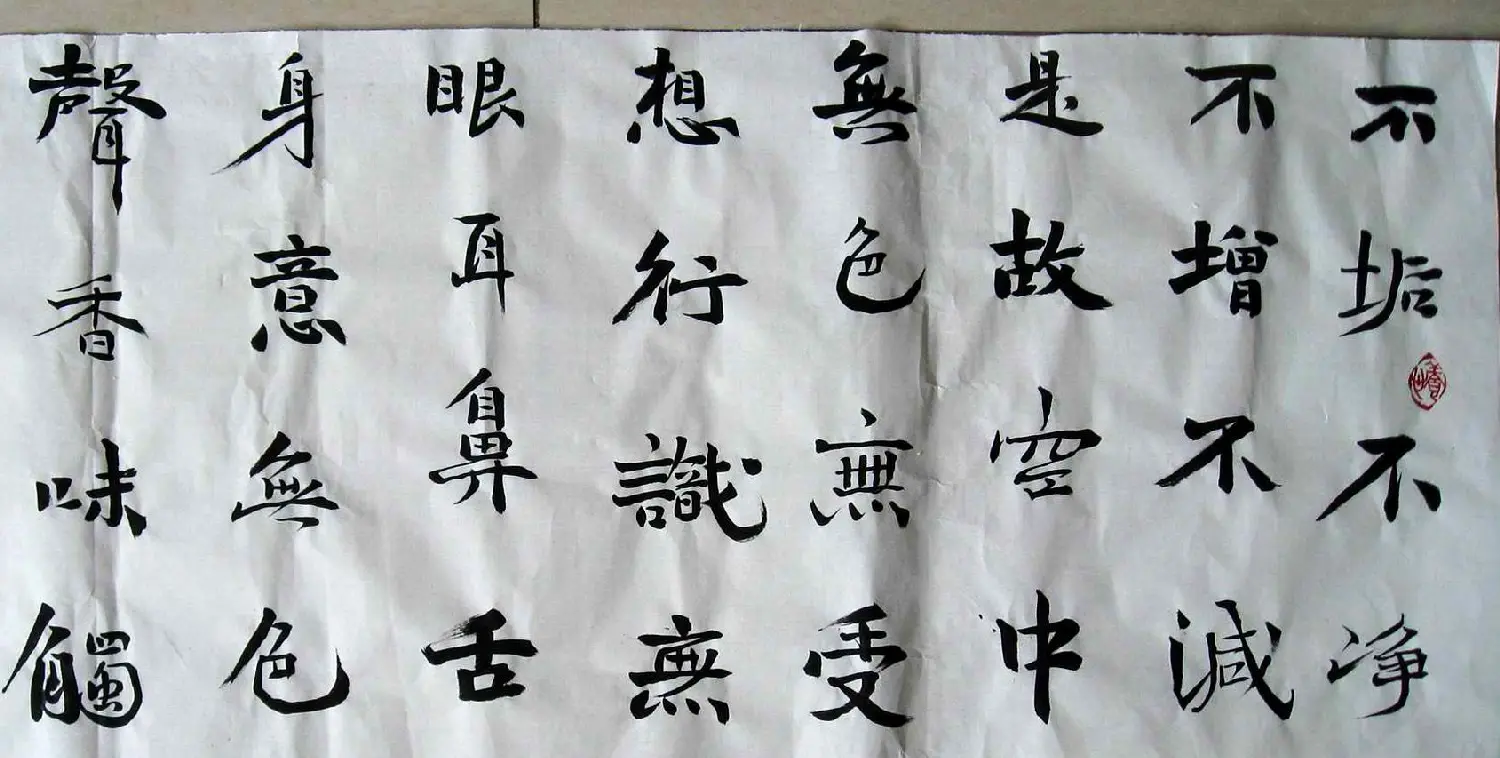 不垢不净
不增不減
是故空中
無色無受
想行識無
眼耳鼻舌
身意無色
聲香味觸